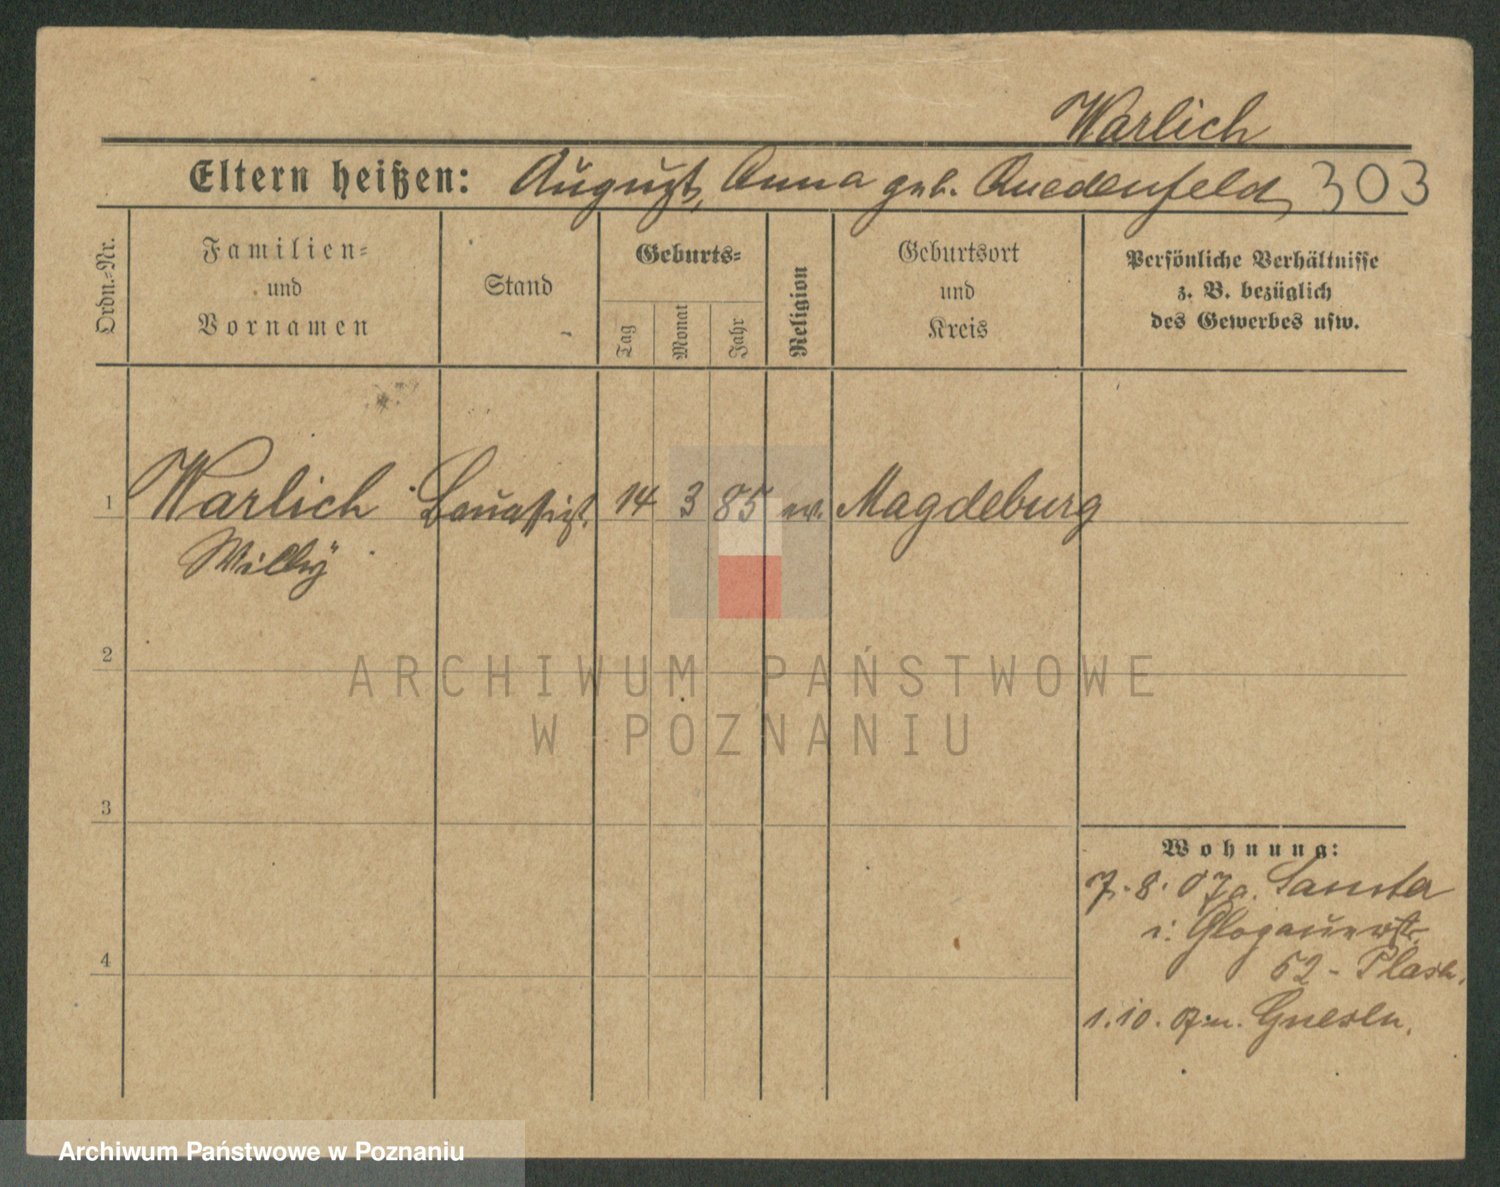 Warlich
Eltern heißen: August, Anna geb. Quedenfeld 303
Ordn.=Nr.
Familien=
und
Vornamen
Stand
Geburts=
Tag
Monat
Jahr
Religion
Geburtsort
und
Kreis
Persönliche Verhältnisse
z. B. bezüglich
des Gewerbes usw.
1 Warlich 14 3 85 ev. Magdeburg
Willy
2
ARCHIWUM PAŃSTWOWE
W POZNANIU
3
Wohnung:
7. 8. 07 a. Samter
i. Glogauerstr.
4
52 - Plash.
1. 10. 07 n. Gnesen.
Archiwum Państwowe w Poznaniu